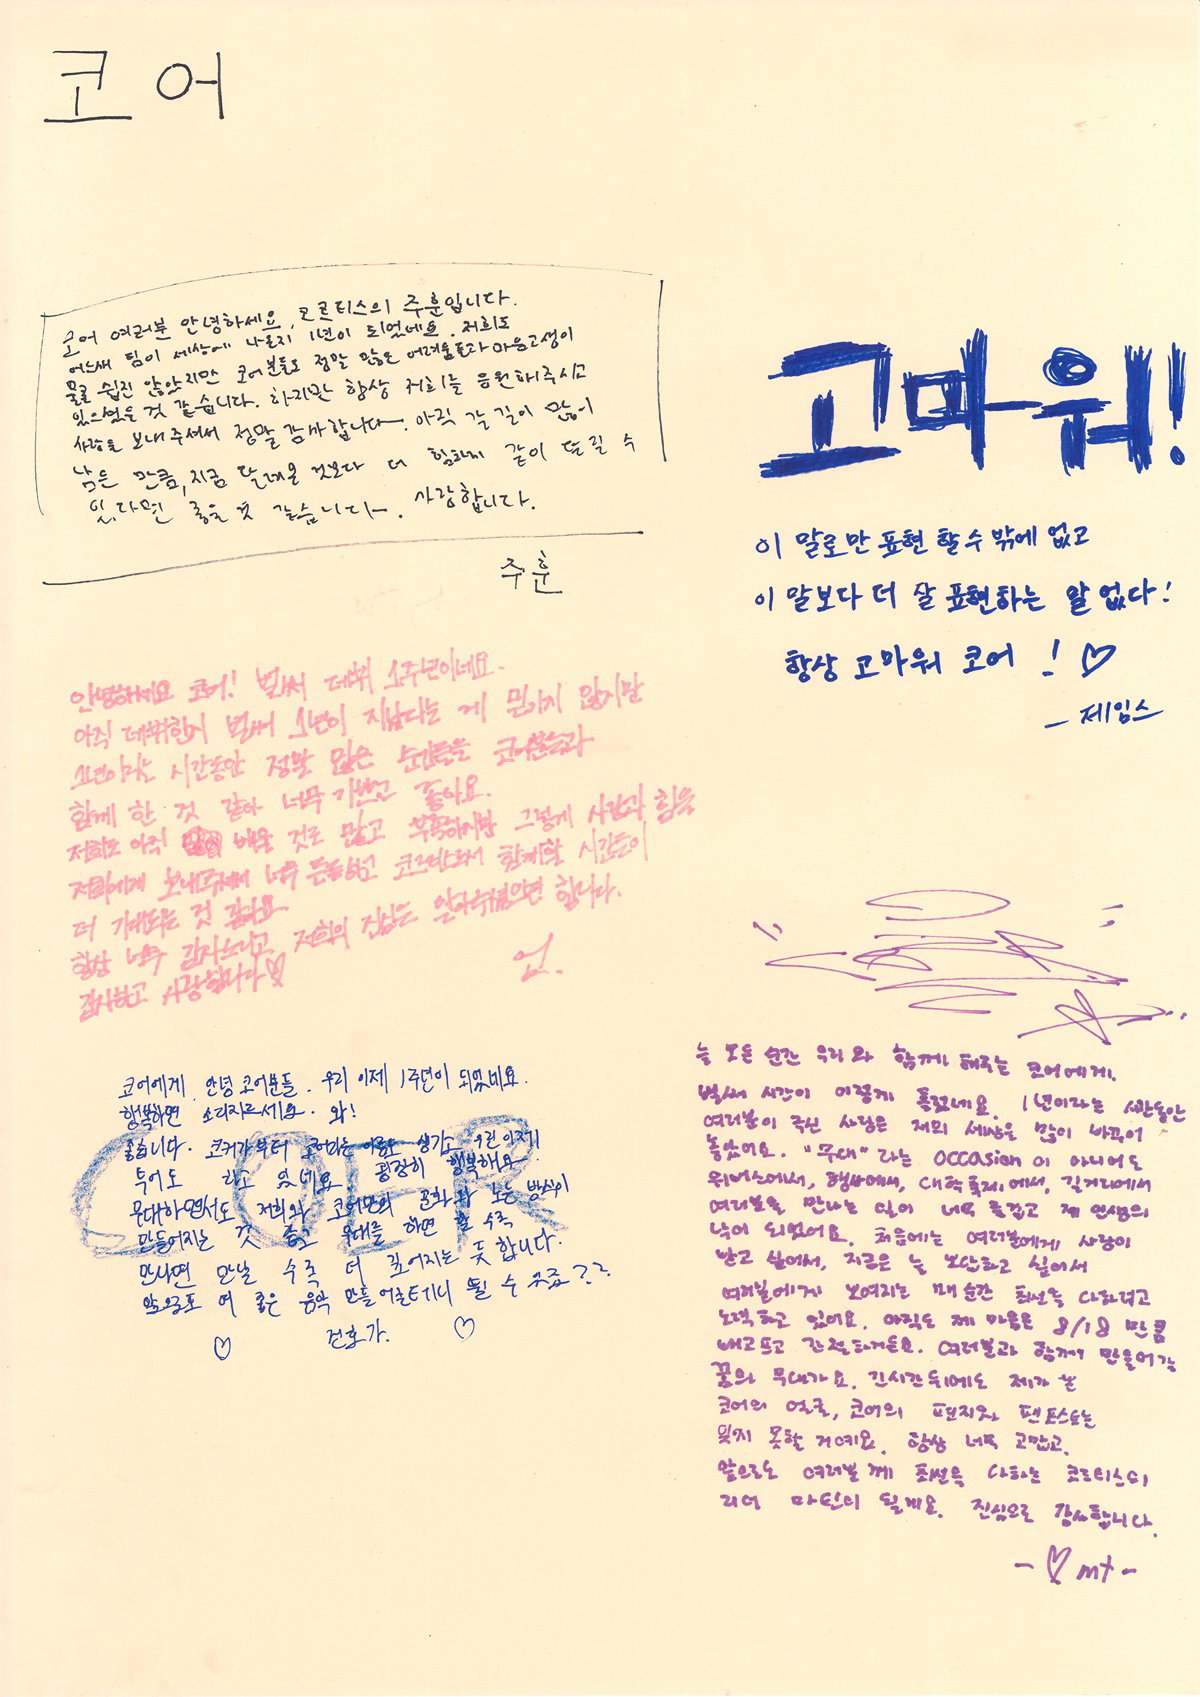 코어
코어 여러분 안녕하세요, 코르티스의 주훈입니다.
어느새 팀이 세상에 나온지 1년이 되었네요. 저희도
물론 쉽진 않았지만 코어분들도 정말 많은 어려움들과 마음고생이
있으셨을 것 같습니다. 하지만 항상 저희를 응원해주시고
사랑을 보내주셔서 정말 감사합니다. 아직 갈 길이 많이
남은 만큼, 지금 달려온 것보다 더 힘차게 같이 달릴 수
있다면 좋을 것 같습니다. 사랑합니다.
주훈
고마워!
이 말로만 표현 할 수 밖에 없고
이 말보다 더 잘 표현하는 말 없다!
항상 고마워 코어 ! ♡
- 제임스
안녕하세요 코어! 벌써 데뷔 1주년이네요.
아직 데뷔한지 벌써 1년이 지났다는 게 믿기지 않지만
1년이라는 시간동안 정말 많은 순간들을 코어분들과
함께 한 것 같아 너무 기쁘고 좋아요.
저희도 아직 배울 것도 많고 부족하지만 그렇게 사랑과 힘을
저희에게 보내주셔서 너무 든든하고 코르티스로서 함께할 시간들이
더 기대되는 것 같아요
항상 너무 감사드리고, 저희의 진심을 알아주셨으면 합니다.
감사하고 사랑합니다♡
코어에게. 안녕 코어분들. 우리 이제 1주년이 되었네요.
행복하면 소리지르세요. 와!
좋습니다. 코커가부터 코어라는 이름도 생기고 우린 이제
투어도 하고 있네요. 굉장히 행복해요.
무대하면서도 저희와 코어만의 문화와 노는 방식이
만들어지는 것 좋고 무대를 하면 할 수록
만나면 만날 수록 더 깊어지는 듯 합니다.
앞으로도 더 좋은 음악 만들어올테니 될 수
♡ 건호가. ♡
COER
늘 모든 순간 우리와 함께 해주는 코어에게.
벌써 시간이 이렇게 흘렀네요. 1년이라는 시간동안
여러분이 주신 사랑은 저희 세상을 많이 바꾸어
놓았어요. "무대"라는 occasion이 아니어도
위버스에서, 행사에서, 대학축제에서, 길거리에서
여러분을 만나는 일이 너무 즐겁고 제 인생의
낙이 되었어요. 처음에는 여러분에게 사랑이
받고 싶어서, 지금은 늘 보답하고 싶어서
여러분에게 보여지는 매 순간 최선을 다하려고
노력하고 있어요. 아직도 제 마음은 8/18 만큼
배고프고 간절하거든요. 여러분과 함께 만들어갈
꿈의 무대가요. 긴시간뒤에도 제가 본
코어의 얼굴, 코어의 편지와 팬 포스트는
잊지 못할 거예요. 항상 너무 고맙고,
앞으로도 여러분께 최선을 다하는 코르티스의
리더 마틴이 될게요. 진심으로 감사합니다.
-♡ mt-